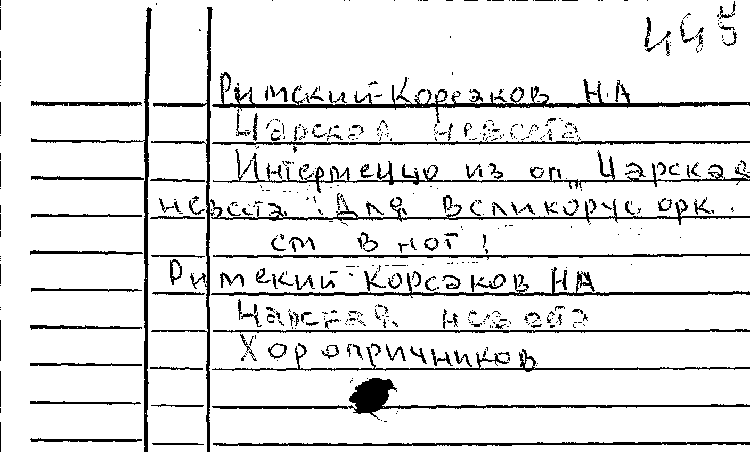 445
Римский-Корсаков Н.А
Царская невеста
Интермеццо из оп „Царская
невеста". Для великорус. орк.
см в нот!
Римский-Корсаков НА
Царская невеста
Хор опричников